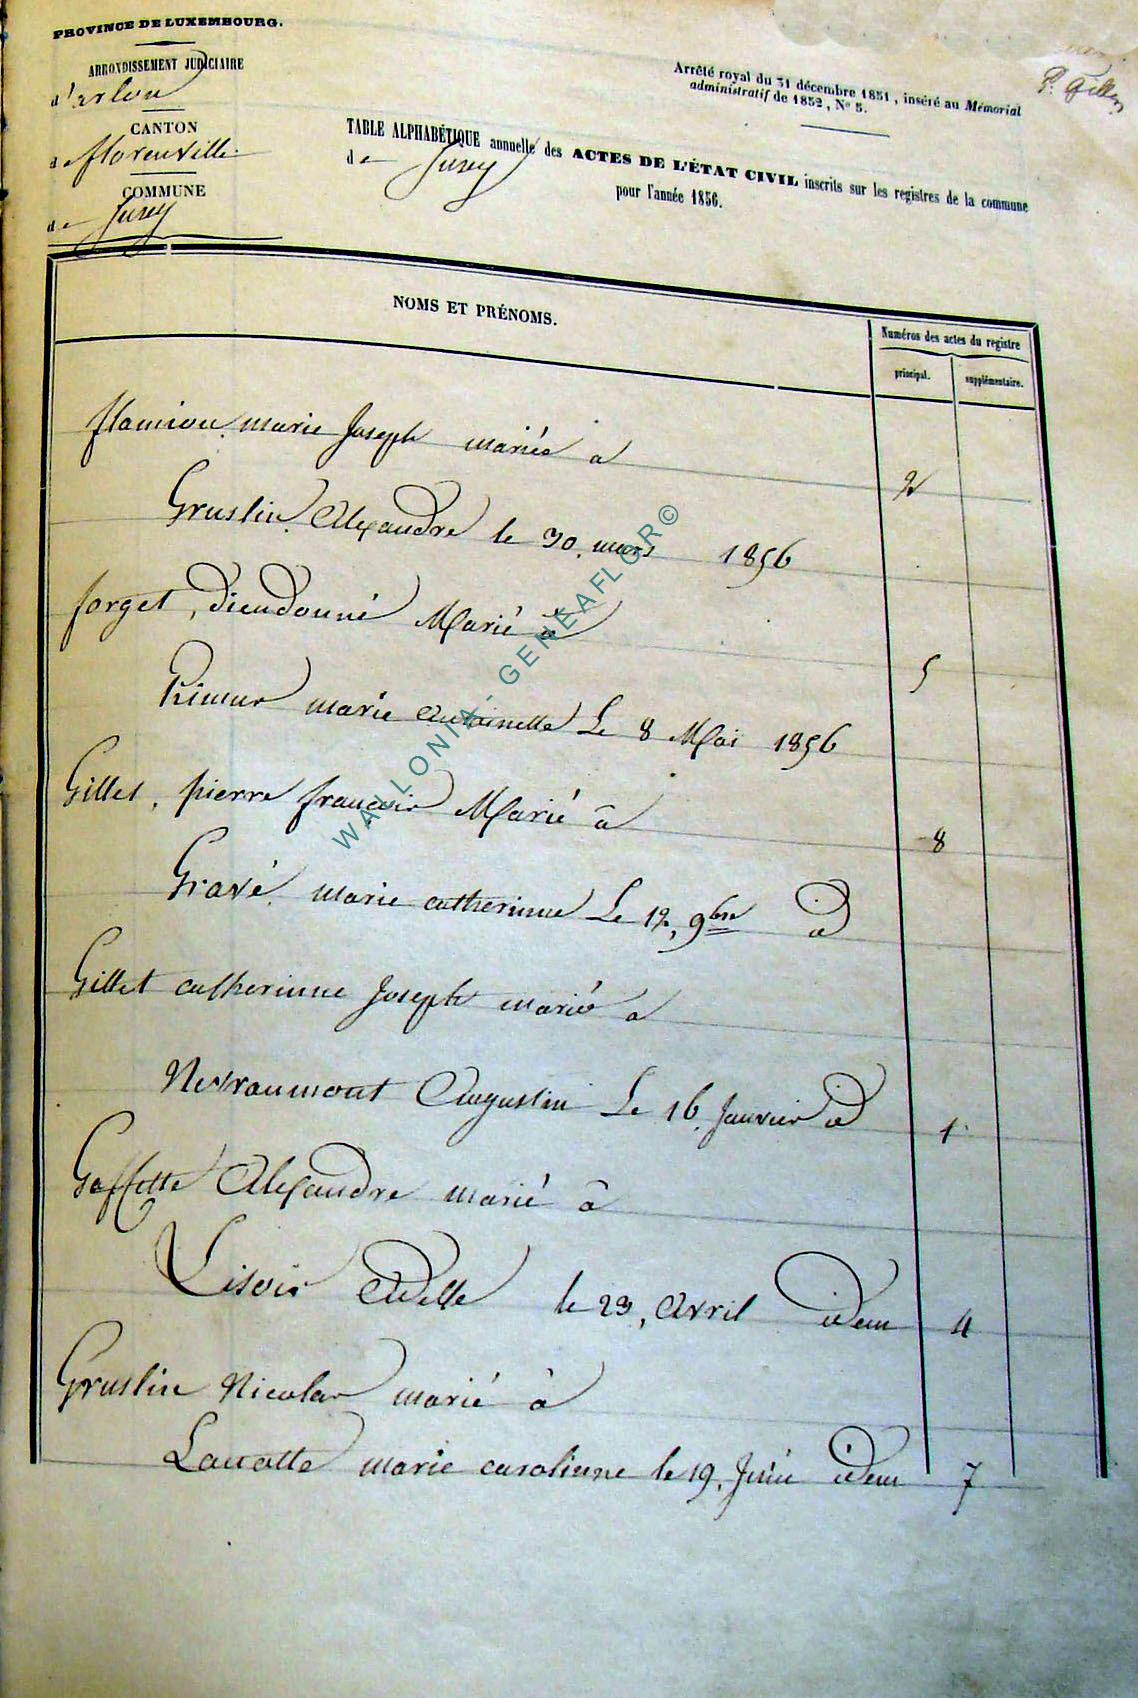 PROVINCE DE LUXEMBOURG.
ARRONDISSEMENT JUDICIAIRE
d'arlon
CANTON
de florenville
COMMUNE
de Jusey
Arrêté royal du 31 décembre 1851, inséré au Mémorial
administratif de 1852, N° 5.
TABLE ALPHABÉTIQUE annuelle des ACTES DE L'ÉTAT CIVIL inscrits sur les registres de la commune
de Jusey pour l'année 1856.
NOMS ET PRÉNOMS.
Numéros des actes du registre
principal. supplémentaire.
flamion marie Joseph mariée a
2
Gruslin Alexandre le 30 mars 1856
forget, dieudonné Marié à
5
marie antoinette Le 8 Mai 1856
Gillet, pierre françois Marié â
8
Gravé marie catherinne Le 12, 9bre id
Gillet catherinne Joseph marié a
Nevraumont Augustin Le 16 Janvier id 1
Goffette Alexandre marié â
Lisoir Adelle le 23, Avril idem 4
Gruslin Nicolas marié à
marie carolinne le 19, Juin idem 7
WALLONIA - GENEAFLOR©